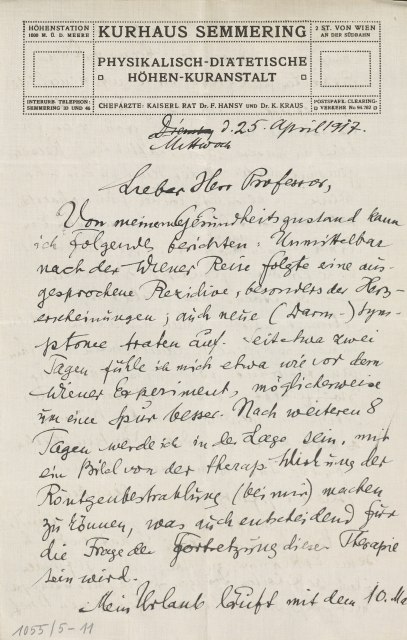 HÖHENSTATION
1000 M. Ü. D. MEERE
KURHAUS SEMMERING
2 ST. VON WIEN
AN DER SÜDBAHN
PHYSIKALISCH-DIÄTETISCHE
HÖHEN-KURANSTALT
INTERURB. TELEPHON:
SEMMERING 20 UND 46
CHEFÄRZTE: KAISERL RAT Dr. F. HANSY UND Dr. K. KRAUS
POSTSPARK. CLEARING-
VERKEHR No
Dienstag d. 25. April 1917.
Mittwoch
Lieber Herr Professor,
Von meinem Gesundheitszustand kann
ich folgendes berichten: Unmittelbar
nach der Wiener Reise folgte eine aus-
gesprochene Rezidive, besonders der Herz-
erscheinungen; auch neue (Darm-) Sym-
ptome traten auf. Seit etwa zwei
Tagen fühle ich mich etwa wie vor dem
Wiener Experiment, möglicherweise
um eine Spur besser. Nach weiteren 8
Tagen werde ich in der Lage sein, mir
ein Bild von der therap. Wirkung der
Röntgenbestrahlung (bei mir) machen
zu können, was auch entscheidend für
die Frage der Fortsetzung dieser Therapie
sein wird.
Mein Urlaub läuft mit dem 10. Ma
1055/5-11